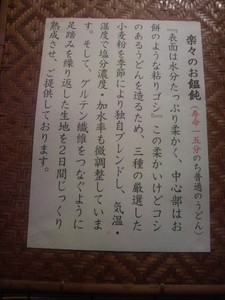 楽々のお饂飩（寿命一五分のち普通のうどん）
『表面は水分たっぷり柔かく、中心部はお
餅のような粘りゴシ』この柔かいけどコシ
のあるうどんを造るため、三種の厳選した
小麦粉を季節により独自ブレンドし、気温・
湿度で塩分濃度・加水率も微調整していま
す。そして、グルテン繊維をつなぐように
足踏みを繰り返した生地を２日間じっくり
熟成させ、ご提供しております。